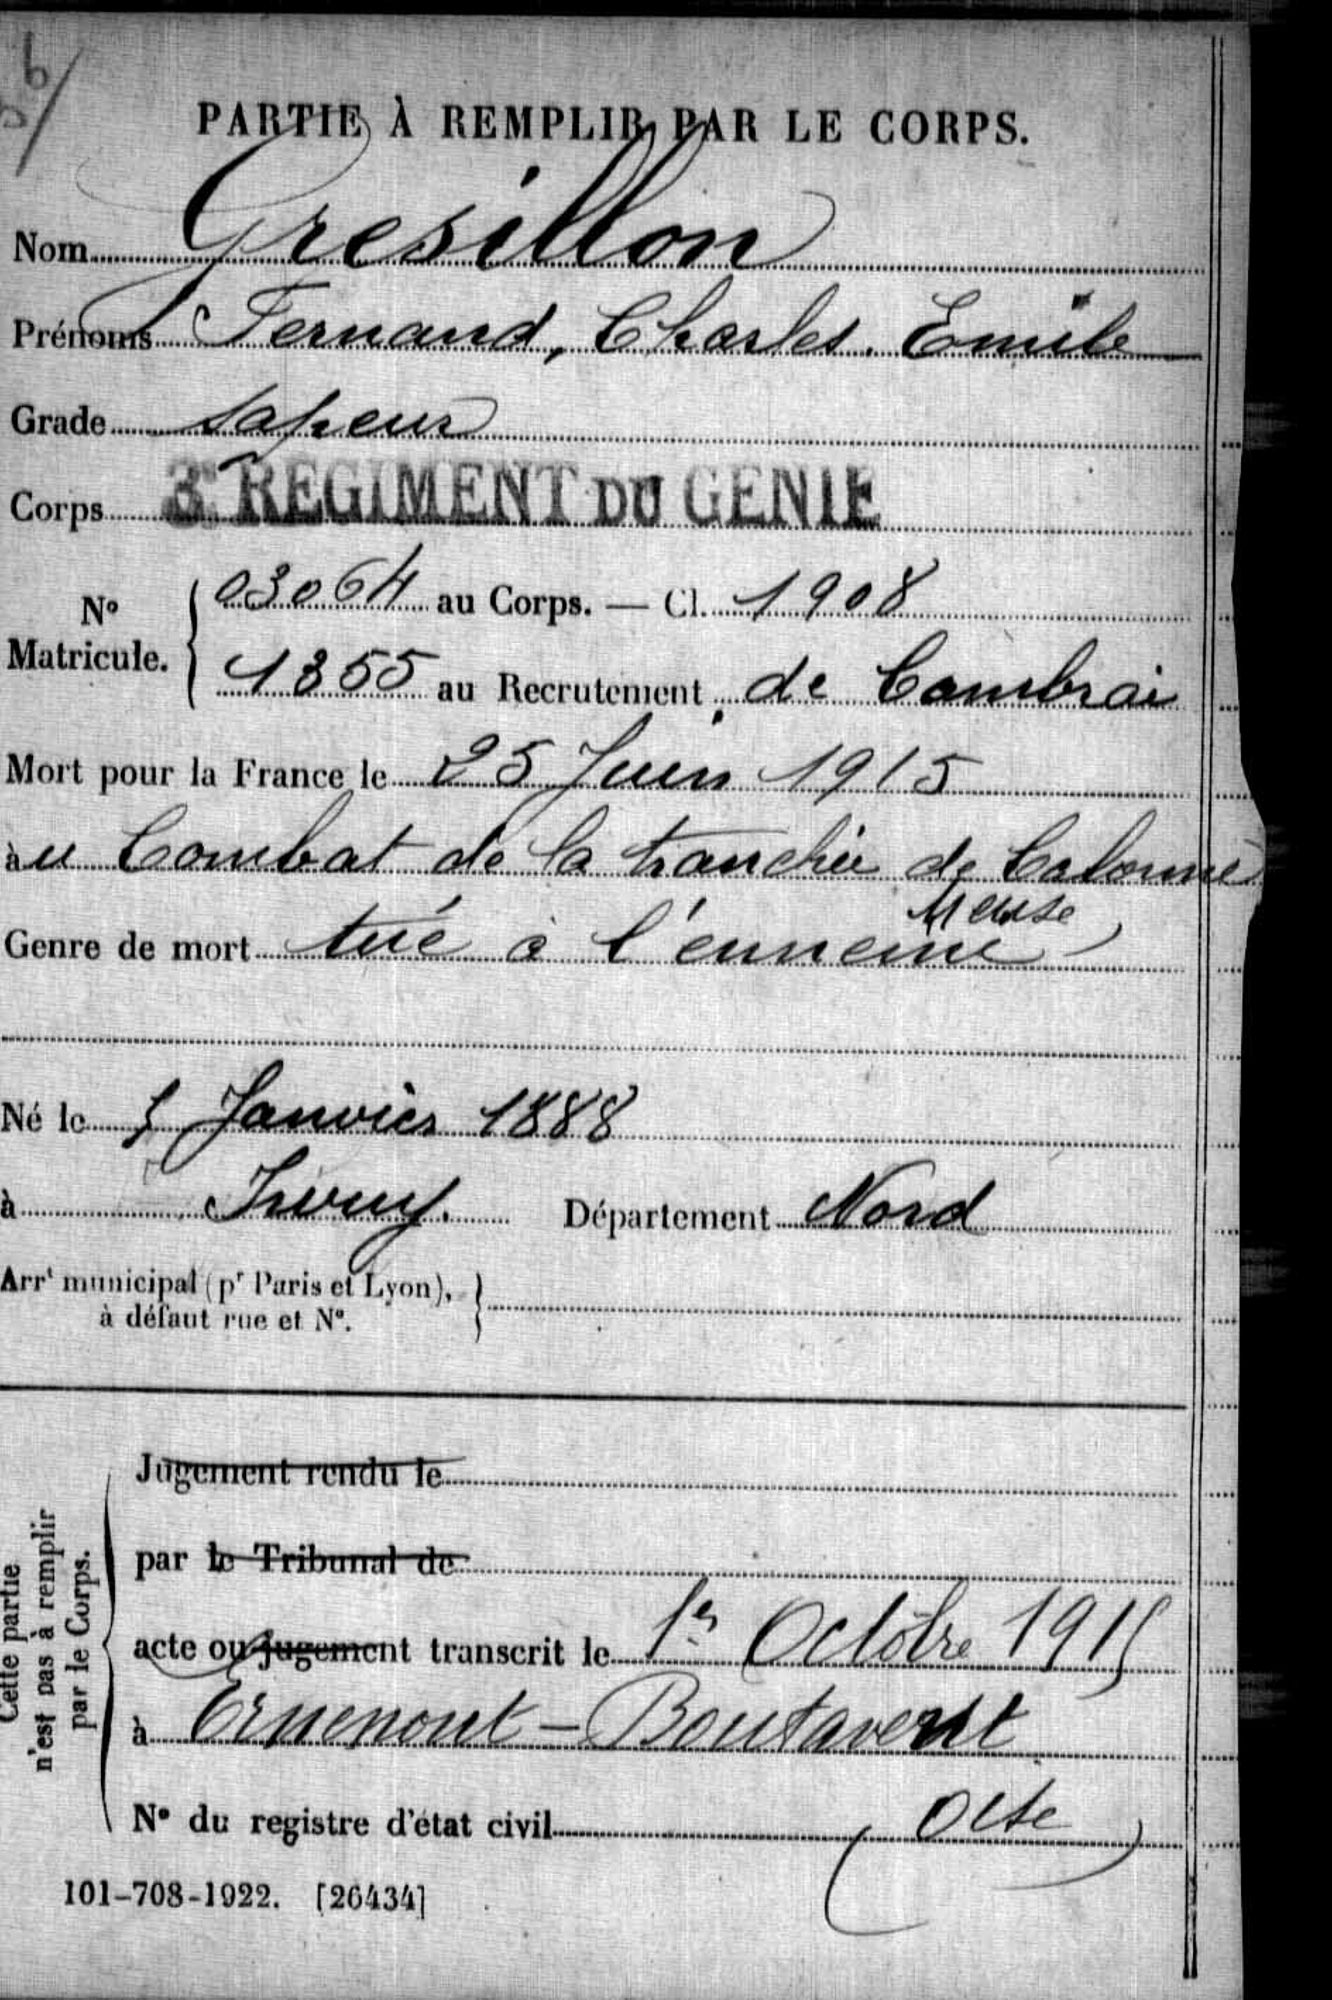 36/
PARTIE À REMPLIR PAR LE CORPS.
Nom Gresillon
Prénoms Fernand, Charles. Emile
Grade Sapeur
Corps 3e REGIMENT DU GENIE
N° Matricule. { 03064 au Corps. — Cl. 1908
1355 au Recrutement de Cambrai
Mort pour la France le 25 Juin 1915
àu Combat de la tranchée de Calonne
Meuse
Genre de mort tué à l'ennemi
Né le 5 Janvier 1888
à Iwuy. Département Nord
Arrt municipal (pr Paris et Lyon),
à défaut rue et N°. }
Cette partie
n'est pas à remplir
par le Corps.
Jugement rendu le
par le Tribunal de
acte ou jugement transcrit le 1er Octobre 1915
à Ernemont - Boutavent
N° du registre d'état civil (Oise)
101-708-1922. [26434]